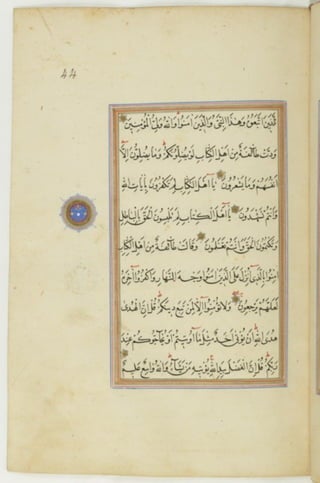 ٤٤
لَلَّذِينَ اتَّبَعُوهُ وَهَٰذَا النَّبِيُّ وَالَّذِينَ آمَنُوا وَاللَّهُ وَلِيُّ الْمُؤْمِنِينَ
وَدَّتْ طَائِفَةٌ مِنْ أَهْلِ الْكِتَابِ لَوْ يُضِلُّونَكُمْ وَمَا يُضِلُّونَ إِلَّا
أَنْفُسَهُمْ وَمَا يَشْعُرُونَ يَا أَهْلَ الْكِتَابِ لِمَ تَكْفُرُونَ بِآيَاتِ اللَّهِ
وَأَنْتُمْ تَشْهَدُونَ يَا أَهْلَ الْكِتَابِ لِمَ تَلْبِسُونَ الْحَقَّ بِالْبَاطِلِ
وَتَكْتُمُونَ الْحَقَّ وَأَنْتُمْ تَعْلَمُونَ وَقَالَتْ طَائِفَةٌ مِنْ أَهْلِ الْكِتَابِ
آمِنُوا بِالَّذِي أُنْزِلَ عَلَى الَّذِينَ آمَنُوا وَجْهَ النَّهَارِ وَاكْفُرُوا آخِرَهُ
لَعَلَّهُمْ يَرْجِعُونَ وَلَا تُؤْمِنُوا إِلَّا لِمَنْ تَبِعَ دِينَكُمْ قُلْ إِنَّ الْهُدَىٰ
هُدَى اللَّهِ أَنْ يُؤْتَىٰ أَحَدٌ مِثْلَ مَا أُوتِيتُمْ أَوْ يُحَاجُّوكُمْ عِنْدَ
رَبِّكُمْ قُلْ إِنَّ الْفَضْلَ بِيَدِ اللَّهِ يُؤْتِيهِ مَنْ يَشَاءُ وَاللَّهُ وَاسِعٌ عَلِيمٌ